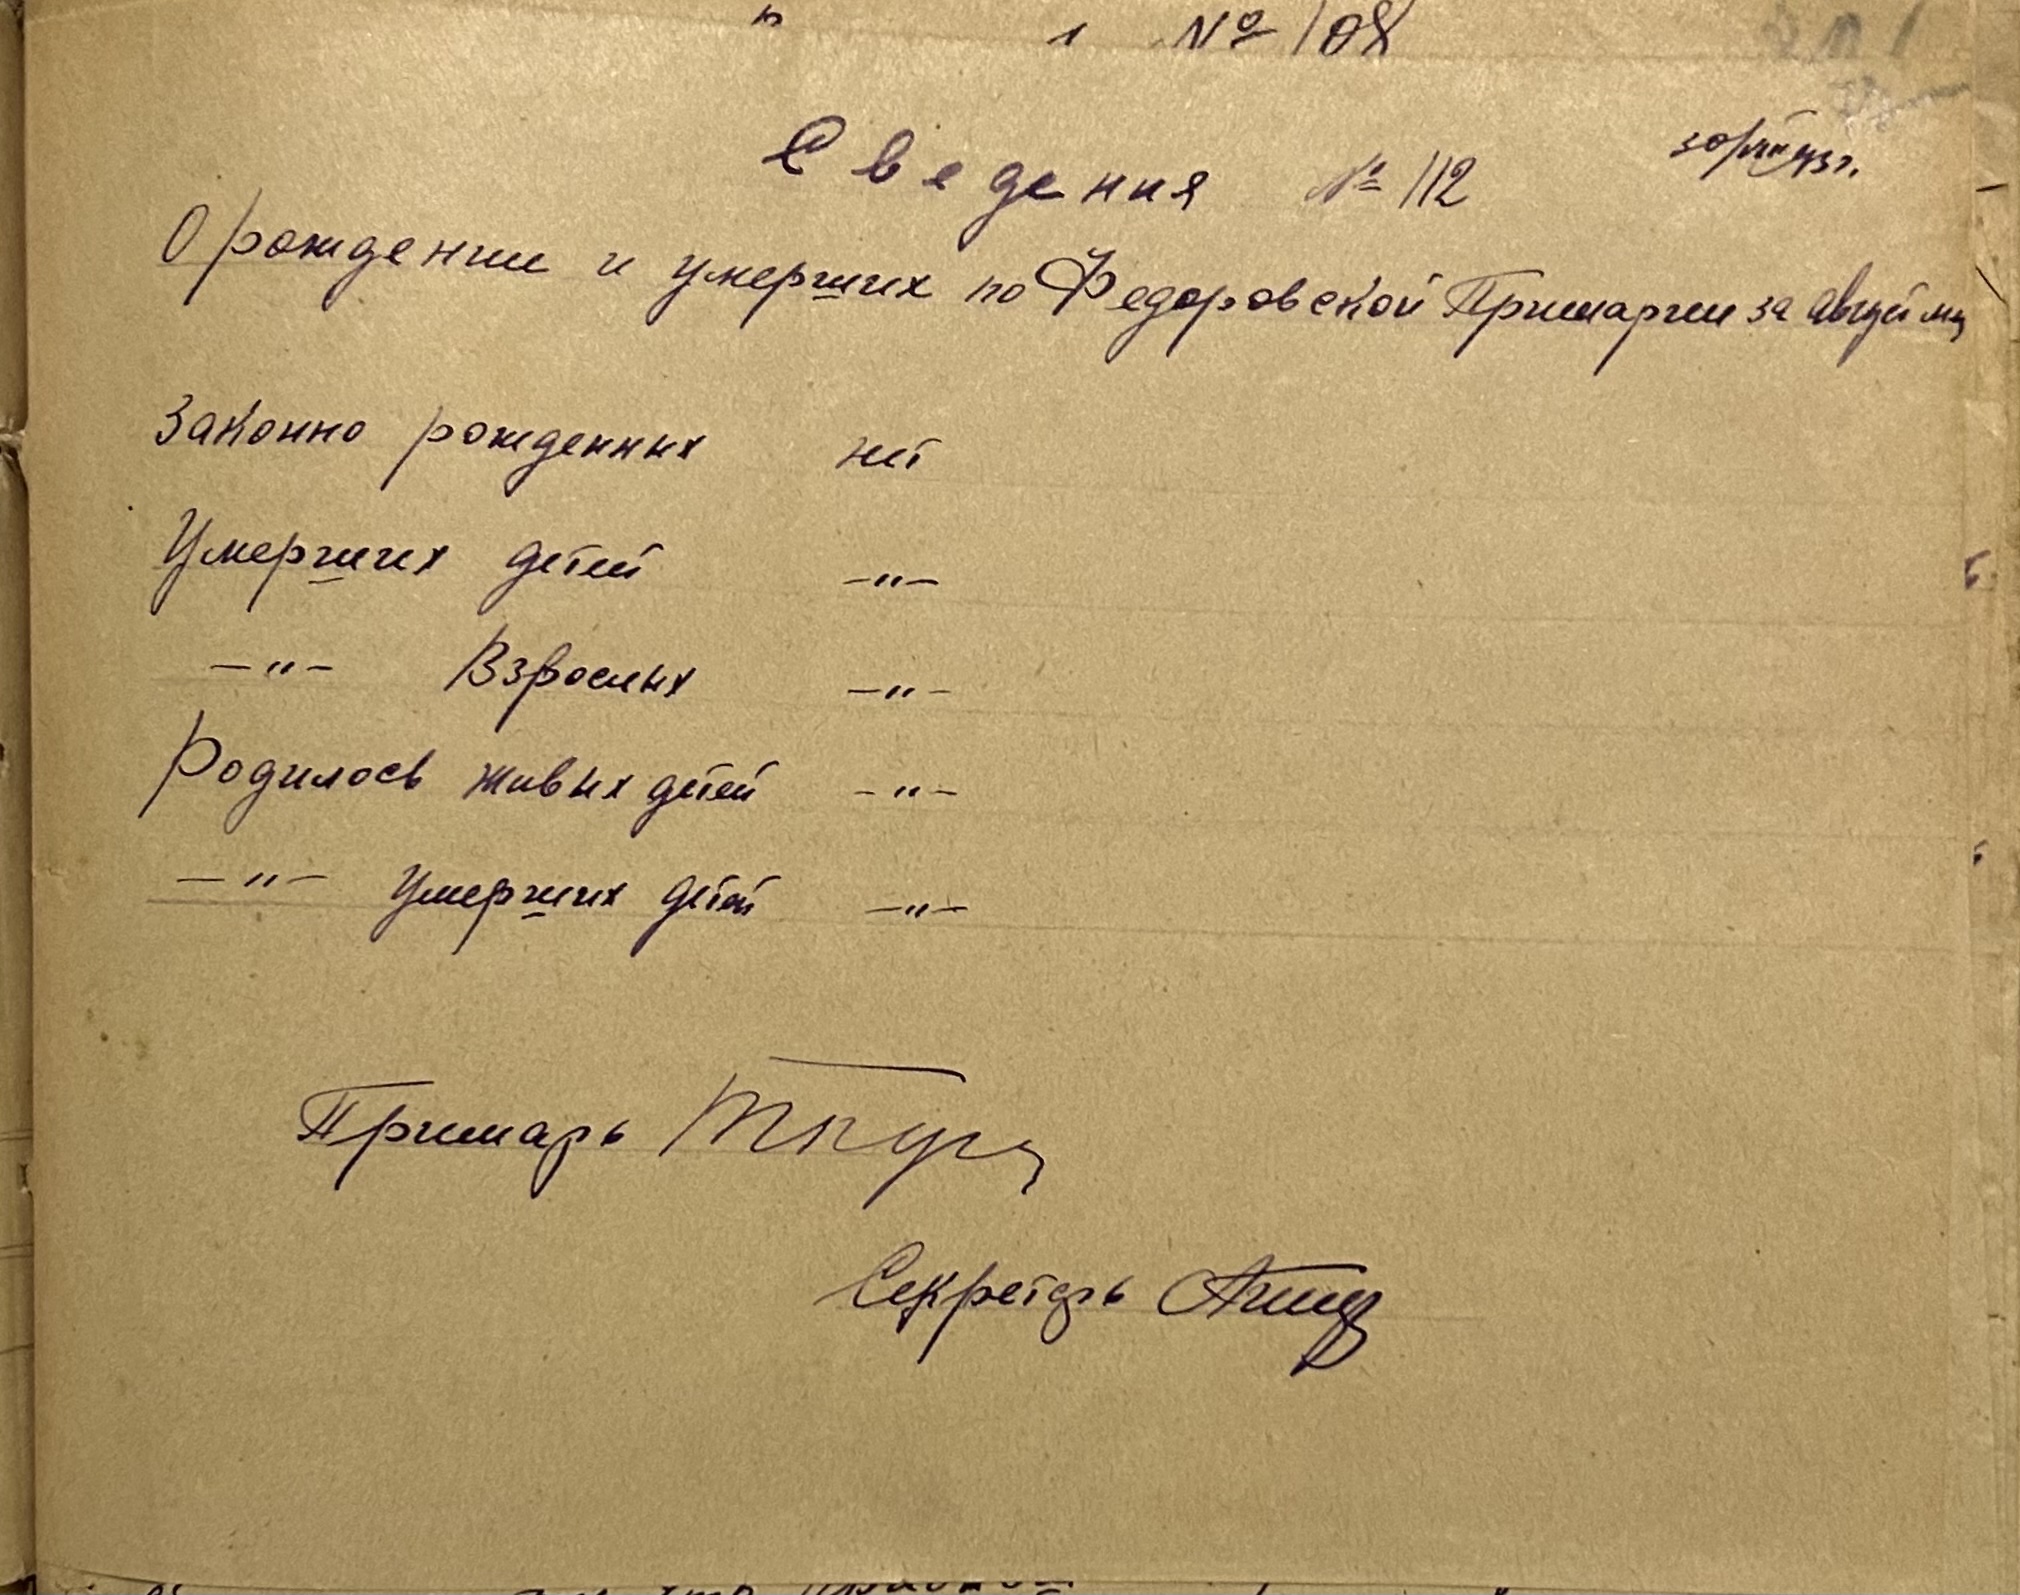 № 108
Сведения № 112
О рождении и умерших по Федоровской Примарии за август мц
Законно рожденных нет
Умерших детей —"—
—"— Взрослых —"—
Родилось живых детей —"—
—"— умерших детей —"—
Примарь
Секретарь